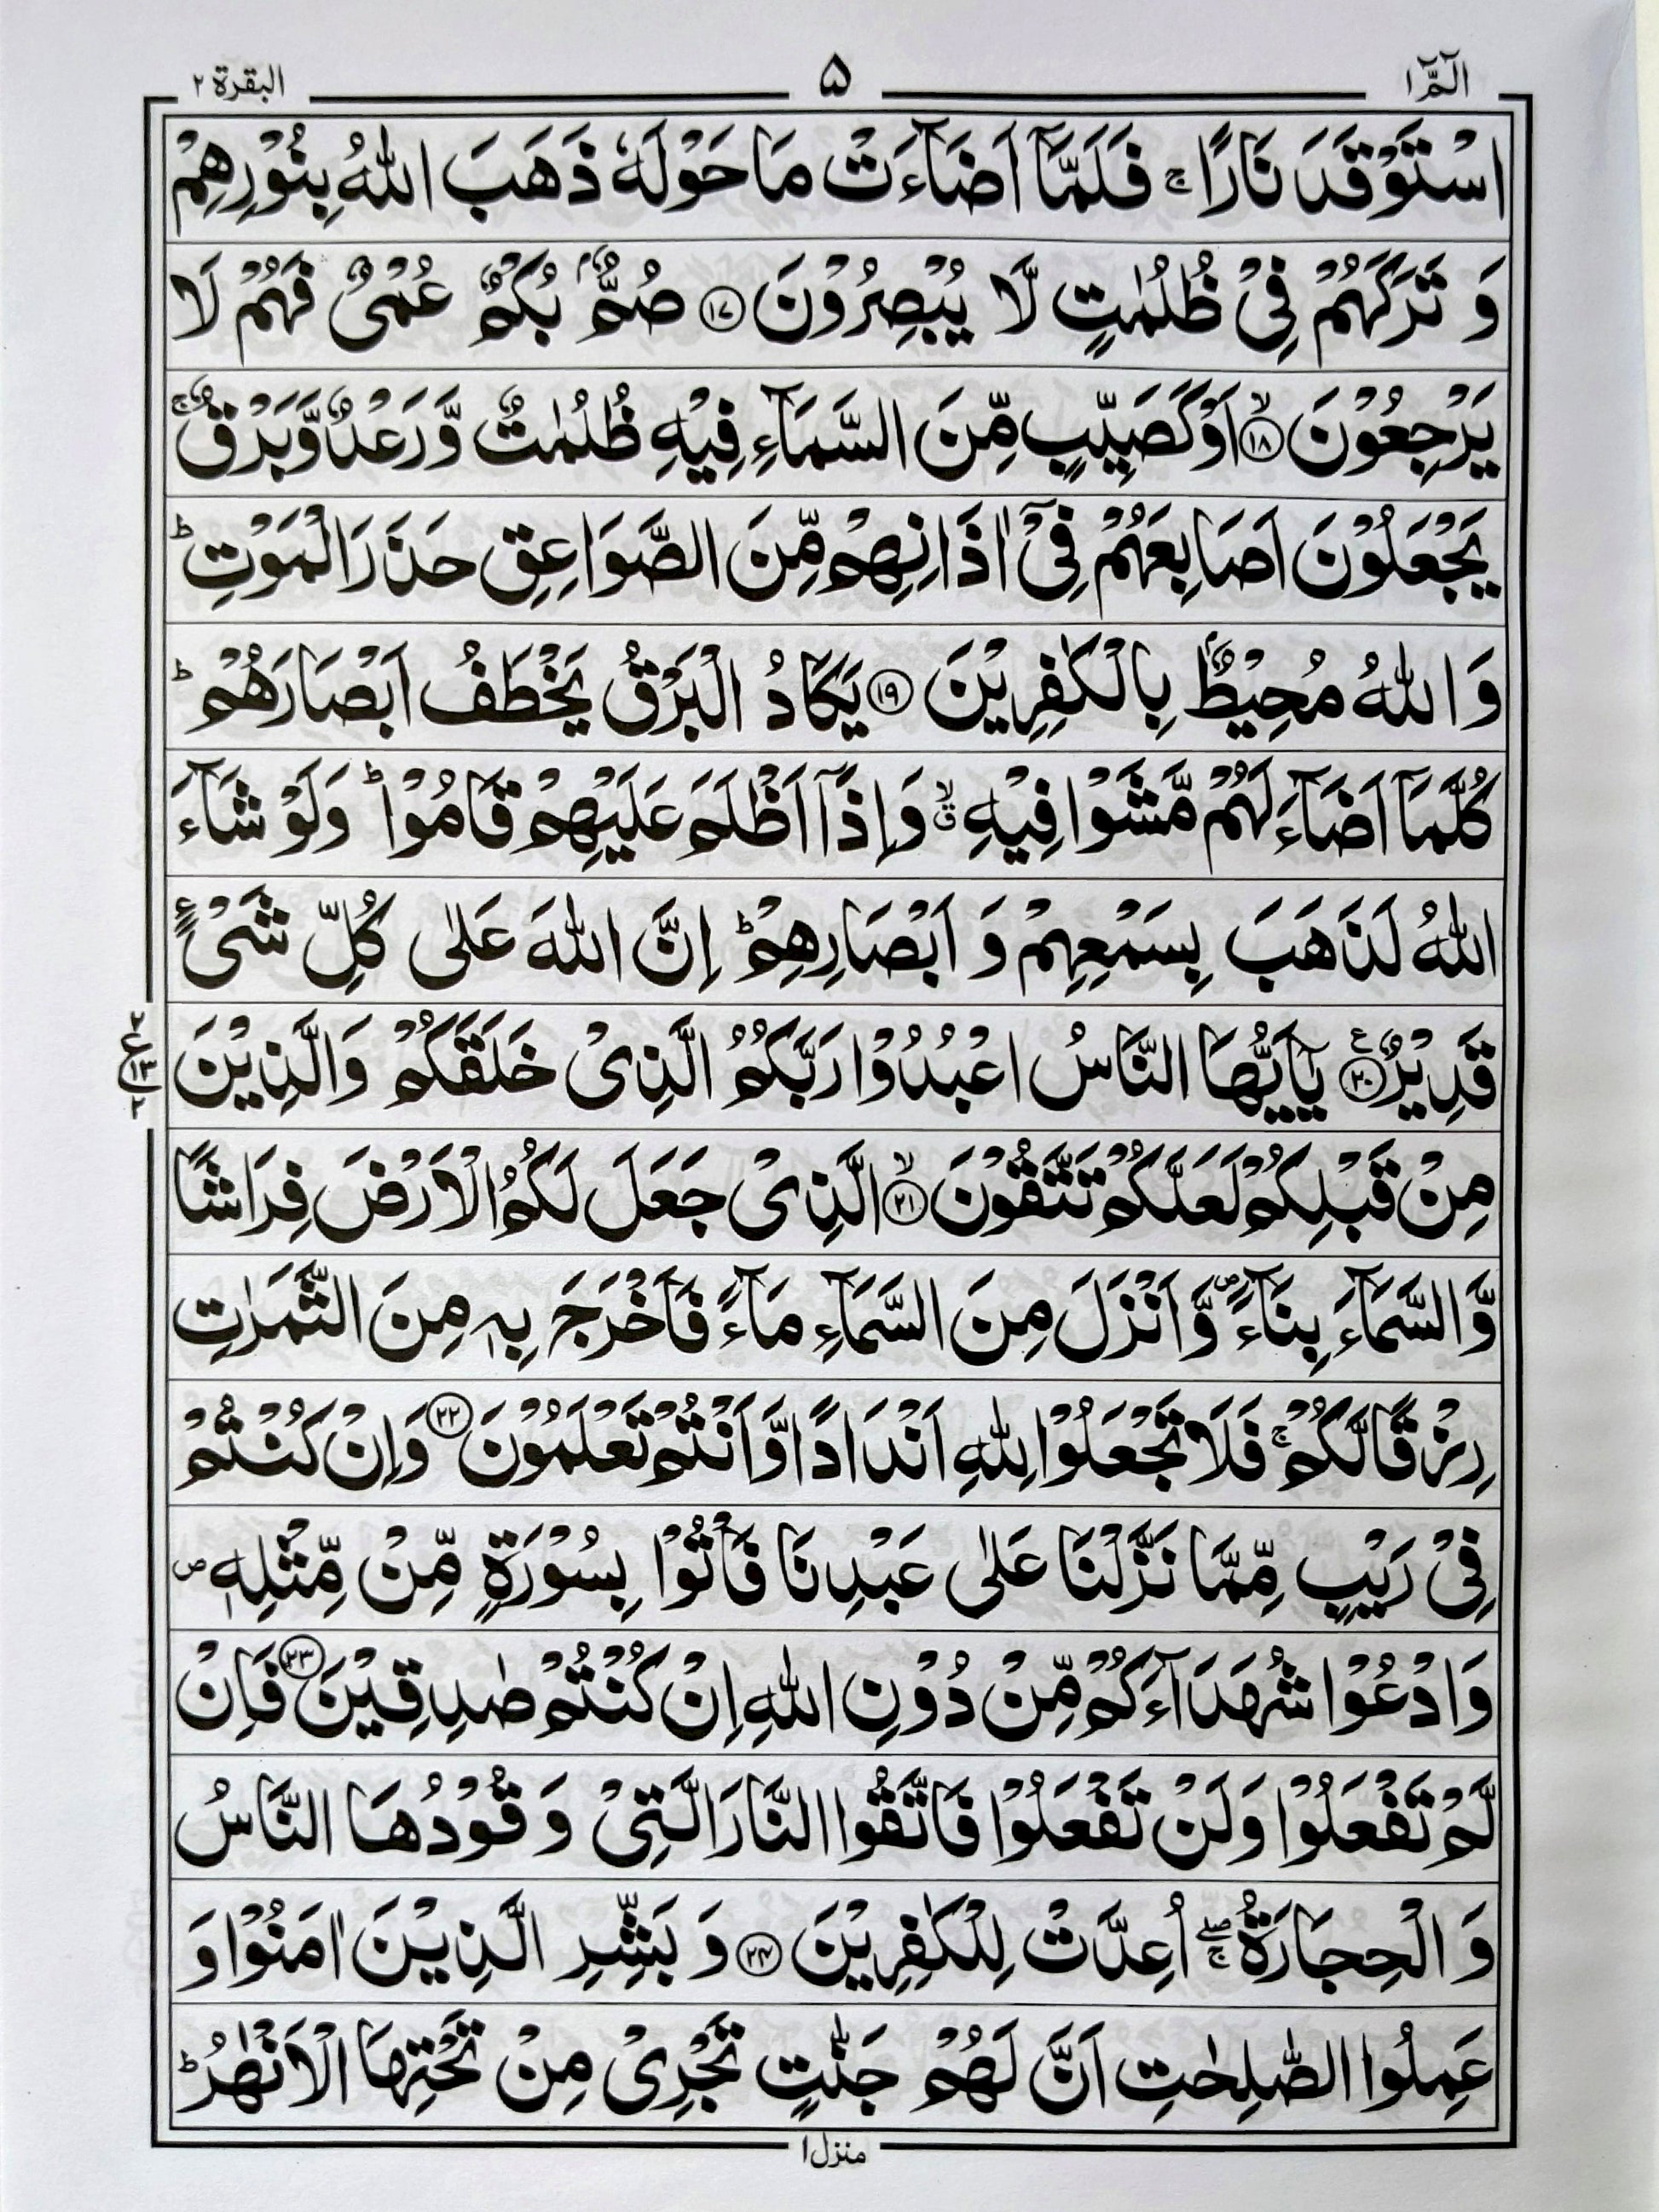 الٓمّٓ ١
۵
البقرة ٢
اسْتَوْقَدَ نَارًا ۚ فَلَمَّاۤ اَضَآءَتْ مَا حَوْلَهٗ ذَهَبَ اللّٰهُ بِنُوْرِهِمْ
وَ تَرَكَهُمْ فِیْ ظُلُمٰتٍ لَّا یُبْصِرُوْنَ ﴿۱۷﴾ صُمٌّۢ بُكْمٌ عُمْیٌ فَهُمْ لَا
یَرْجِعُوْنَ ﴿۱۸﴾ۙ اَوْ كَصَیِّبٍ مِّنَ السَّمَآءِ فِیْهِ ظُلُمٰتٌ وَّ رَعْدٌ وَّ بَرْقٌ ۚ
یَجْعَلُوْنَ اَصَابِعَهُمْ فِیْۤ اٰذَانِهِمْ مِّنَ الصَّوَاعِقِ حَذَرَ الْمَوْتِ ؕ
وَ اللّٰهُ مُحِیْطٌۢ بِالْكٰفِرِیْنَ ﴿۱۹﴾ یَكَادُ الْبَرْقُ یَخْطَفُ اَبْصَارَهُمْ ؕ
كُلَّمَاۤ اَضَآءَ لَهُمْ مَّشَوْا فِیْهِ ۙۗ وَ اِذَاۤ اَظْلَمَ عَلَیْهِمْ قَامُوْا ؕ وَ لَوْ شَآءَ
اللّٰهُ لَذَهَبَ بِسَمْعِهِمْ وَ اَبْصَارِهِمْ ؕ اِنَّ اللّٰهَ عَلٰی كُلِّ شَیْءٍ
قَدِیْرٌ ﴿۲۰﴾ع یٰۤاَیُّهَا النَّاسُ اعْبُدُوْا رَبَّكُمُ الَّذِیْ خَلَقَكُمْ وَ الَّذِیْنَ
مِنْ قَبْلِكُمْ لَعَلَّكُمْ تَتَّقُوْنَ ﴿۲۱﴾ۙ الَّذِیْ جَعَلَ لَكُمُ الْاَرْضَ فِرَاشًا
وَّ السَّمَآءَ بِنَآءً ۪ وَّ اَنْزَلَ مِنَ السَّمَآءِ مَآءً فَاَخْرَجَ بِهٖ مِنَ الثَّمَرٰتِ
رِزْقًا لَّكُمْ ۚ فَلَا تَجْعَلُوْا لِلّٰهِ اَنْدَادًا وَّ اَنْتُمْ تَعْلَمُوْنَ ﴿۲۲﴾ وَ اِنْ كُنْتُمْ
فِیْ رَیْبٍ مِّمَّا نَزَّلْنَا عَلٰی عَبْدِنَا فَاْتُوْا بِسُوْرَةٍ مِّنْ مِّثْلِهٖ ۪
وَ ادْعُوْا شُهَدَآءَكُمْ مِّنْ دُوْنِ اللّٰهِ اِنْ كُنْتُمْ صٰدِقِیْنَ ﴿۲۳﴾ فَاِنْ
لَّمْ تَفْعَلُوْا وَ لَنْ تَفْعَلُوْا فَاتَّقُوا النَّارَ الَّتِیْ وَ قُوْدُهَا النَّاسُ
وَ الْحِجَارَةُ ۖۚ اُعِدَّتْ لِلْكٰفِرِیْنَ ﴿۲۴﴾ وَ بَشِّرِ الَّذِیْنَ اٰمَنُوْا وَ
عَمِلُوا الصّٰلِحٰتِ اَنَّ لَهُمْ جَنّٰتٍ تَجْرِیْ مِنْ تَحْتِهَا الْاَنْهٰرُ ؕ
منزل ١